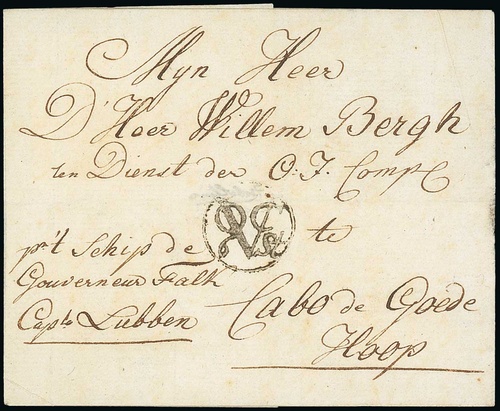 Myn Heer
D'Heer Willem Bergh
ten Dienst der O: I. Comp
te
pr't Schip de
Gouverneur Falk
Capt: Lubben
Cabo de Goede
Hoop